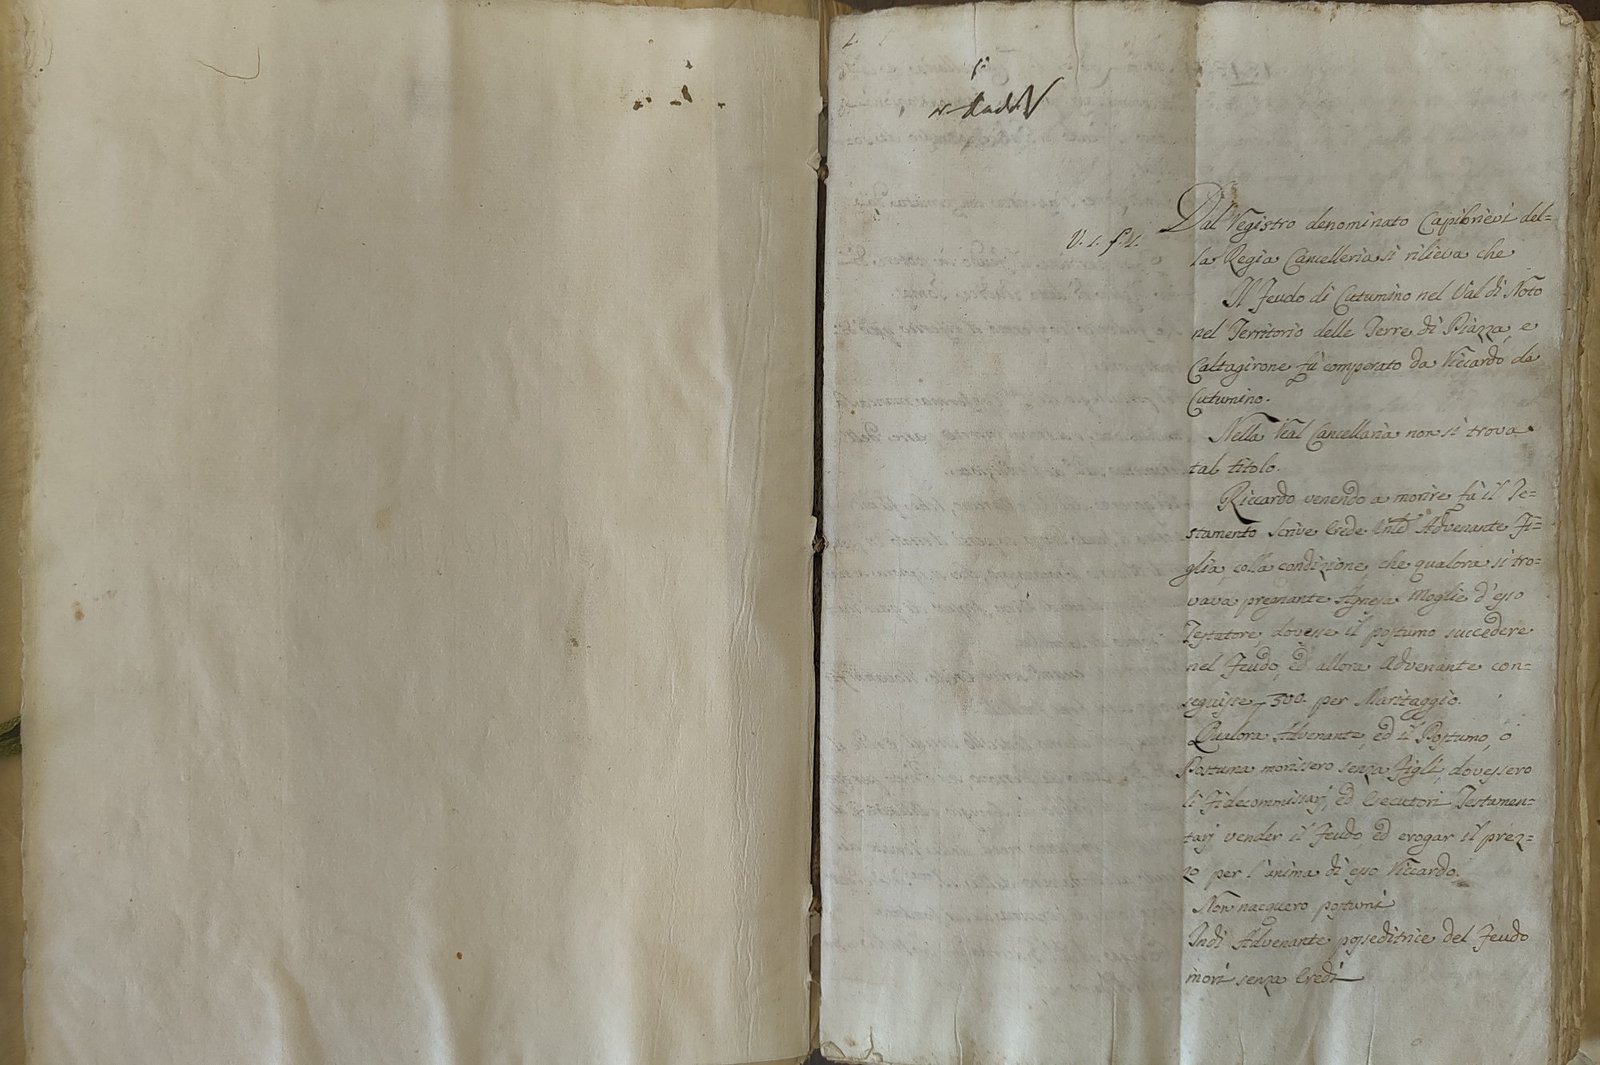 V. 1. f. 1.
Dal Registro denominato Capibrievi del=
la Regia Cancelleria si rilieva che
Il Feudo di Cutumino nel Val di Noto
nel Territorio delle Terre di Piazza, e
Caltagirone fù comperato da Riccardo de
Cutumino.
Nella Real Cancellaria non si trova
tal titolo.
Riccardo venendo a morire fà il Te=
stamento scrive Erede Advenante Fi=
glia, colla condizione, che qualora si tro=
vava pregnante Agnesa Moglie d'esso
Testatore, dovesse il postumo succedere
nel Feudo, ed allora Advenante con=
seguisse 500. per Maritaggio.
Qualora Advenante, ed il Postumo, ò
Postuma morissero senza Figli, dovessero
li Fidecommissarj, ed Esecutori Testamen=
tarj vender il Feudo, ed erogar il prez=
zo per l'anima di esso Riccardo.
Non nacquero postumi
Indi Advenante posseditrice del Feudo
morì senza Eredi